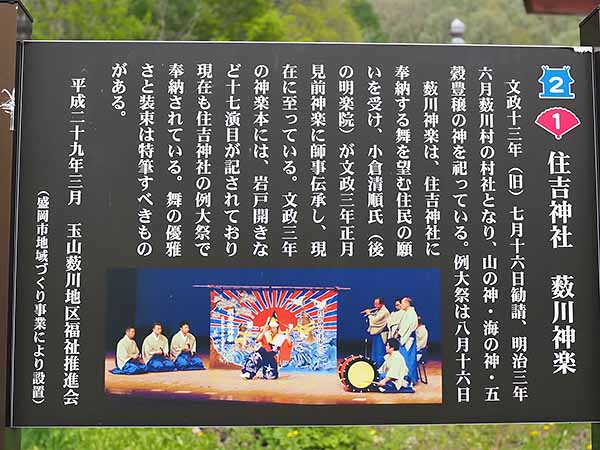 2
1
住吉神社 薮川神楽
文政十三年（旧）七月十六日勧請、明治三年
六月薮川村の村社となり、山の神・海の神・五
穀豊穣の神を祀っている。例大祭は八月十六日
薮川神楽は、住吉神社に
奉納する舞を望む住民の願
いを受け、小倉清順氏（後
の明楽院）が文政三年正月
見前神楽に師事伝承し、現
在に至っている。文政三年
の神楽本には、岩戸開きな
ど十七演目が記されており
現在も住吉神社の例大祭で
奉納されている。舞の優雅
さと装束は特筆すべきもの
がある。
平成二十九年三月 玉山薮川地区福祉推進会
（盛岡市地域づくり事業により設置）